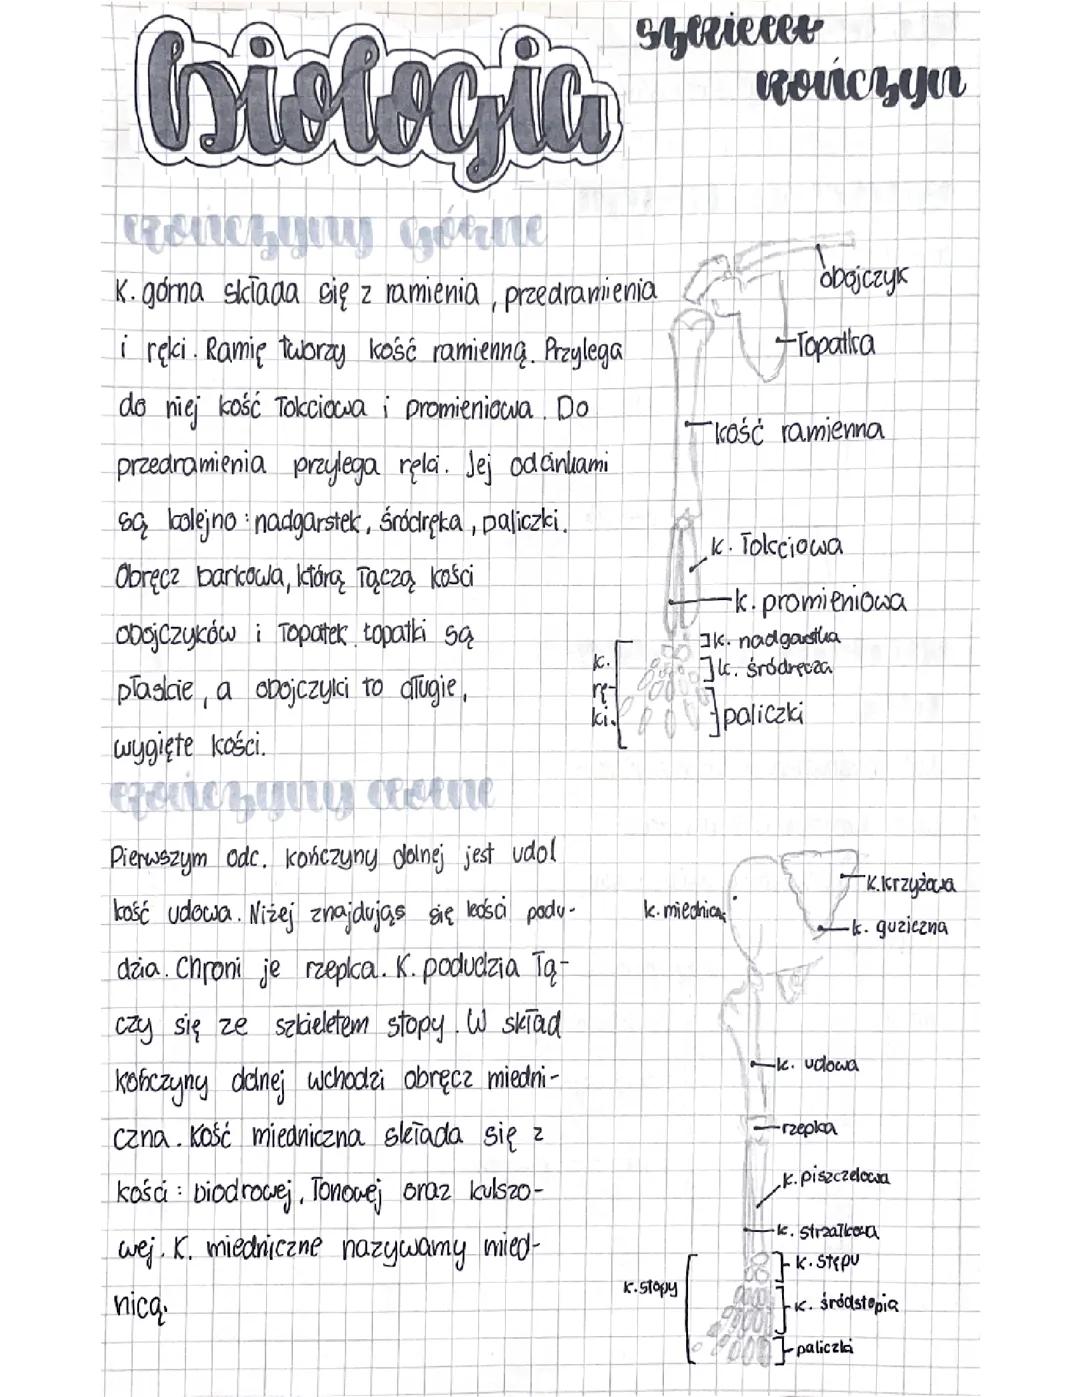 biologia
szkielet
kończyn
kończyny górne
K. górna składa się z ramienia, przedramienia
i ręki. Ramię tworzy kość ramienną. Przylega
do niej kość łokciowa i promieniowa. Do
przedramienia przylega ręki. Jej odcinkami
są kolejno: nadgarstek, śródręka, paliczki.
Obręcz barkowa, którą łączą kości
obojczyków i łopatek. łopatki są
płaskie, a obojczyki to długie,
wygięte kości.
obojczyk
łopatka
kość ramienna
k. łokciowa
k. promieniowa
k. nadgarstka
k. śródręcza
paliczki
k.
rę-
ki.
kończyny dolne
Pierwszym odc. kończyny dolnej jest udo
kość udowa. Niżej znajdując się kości podu-
dzia. Chroni je rzepka. K. podudzia łą-
czy się ze szkieletem stopy. W skład
kończyny dolnej wchodzi obręcz miedni-
czna. Kość miedniczna składa się z
kości: biodrowej, łonowej oraz kulszo-
wej. K. miedniczne nazywamy mied-
nicą.
k. miednicza
k. krzyżowa
k. guziczna
k. udowa
rzepka
k. piszczelowa
k. strzałkowa
k. stępu
k. śródstopia
paliczki
k. stopy